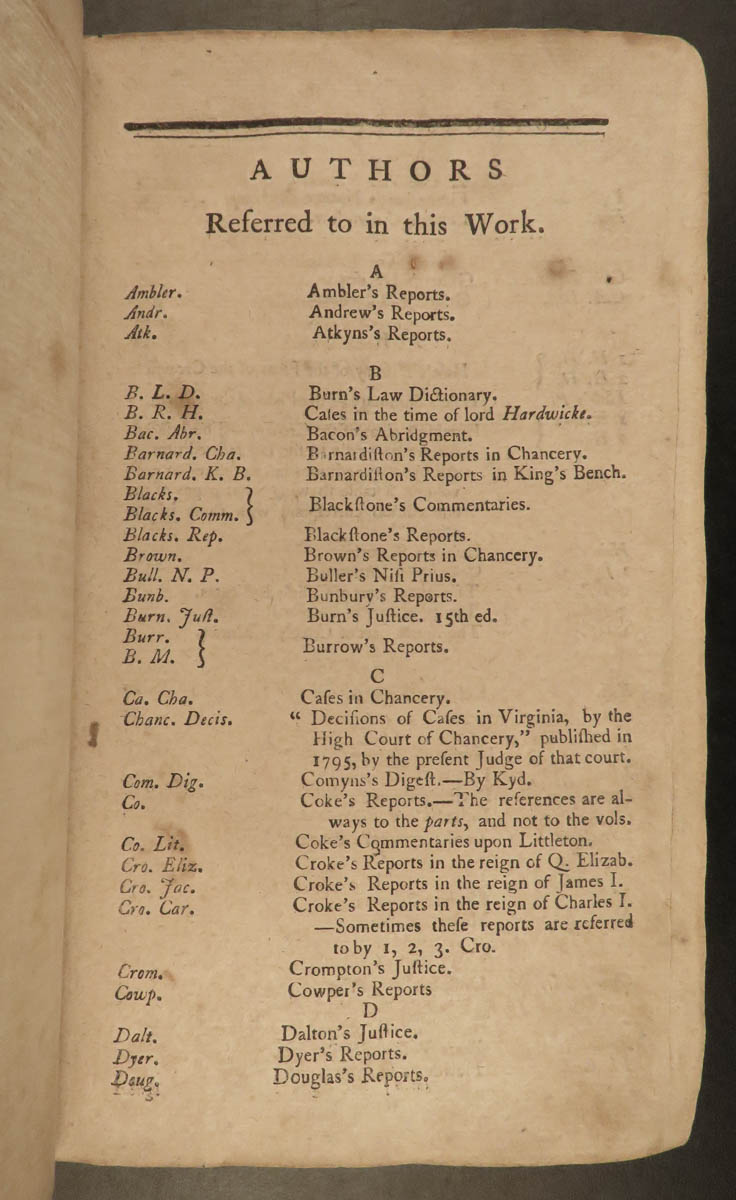 AUTHORS
Referred to in this Work.
A
Ambler. Ambler's Reports.
Andr. Andrew's Reports.
Atk. Atkyns's Reports.
B
B. L. D. Burn's Law Dictionary.
B. R. H. Caſes in the time of lord Hardwicke.
Bac. Abr. Bacon's Abridgment.
Barnard. Cha. Barnardiſton's Reports in Chancery.
Barnard. K. B. Barnardiſton's Reports in King's Bench.
Blacks.
Blacks. Comm. } Blackſtone's Commentaries.
Blacks. Rep. Blackſtone's Reports.
Brown. Brown's Reports in Chancery.
Bull. N. P. Buller's Niſi Prius.
Bunb. Bunbury's Reports.
Burn. Juſt. Burn's Juſtice. 15th ed.
Burr.
B. M. } Burrow's Reports.
C
Ca. Cha. Caſes in Chancery.
Chanc. Decis. “ Deciſions of Caſes in Virginia, by the
High Court of Chancery,” publiſhed in
1795, by the preſent Judge of that court.
Com. Dig. Comyns's Digeſt.—By Kyd.
Co. Coke's Reports.—The references are al-
ways to the parts, and not to the vols.
Co. Lit. Coke's Commentaries upon Littleton.
Cro. Eliz. Croke's Reports in the reign of Q. Elizab.
Cro. Jac. Croke's Reports in the reign of James I.
Cro. Car. Croke's Reports in the reign of Charles I.
—Sometimes theſe reports are referred
to by 1, 2, 3. Cro.
Crom. Crompton's Juſtice.
Cowp. Cowper's Reports
D
Dalt. Dalton's Juſtice.
Dyer. Dyer's Reports.
Doug. Douglas's Reports.